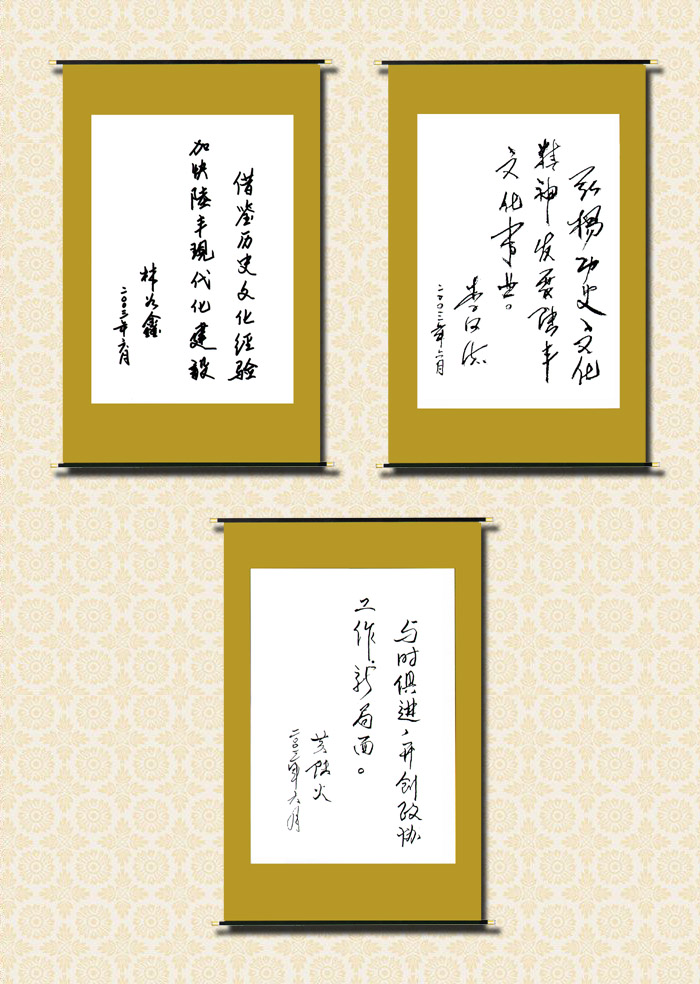 借鉴历史文化经验
加快陆丰现代化建设
林少鑫
二〇〇三年六月
弘扬历史文化
精神发展陆丰
文化事业。
李汉
二〇〇三年六月
与时俱进,开创政协
工作新局面。
火
二〇〇三年六月